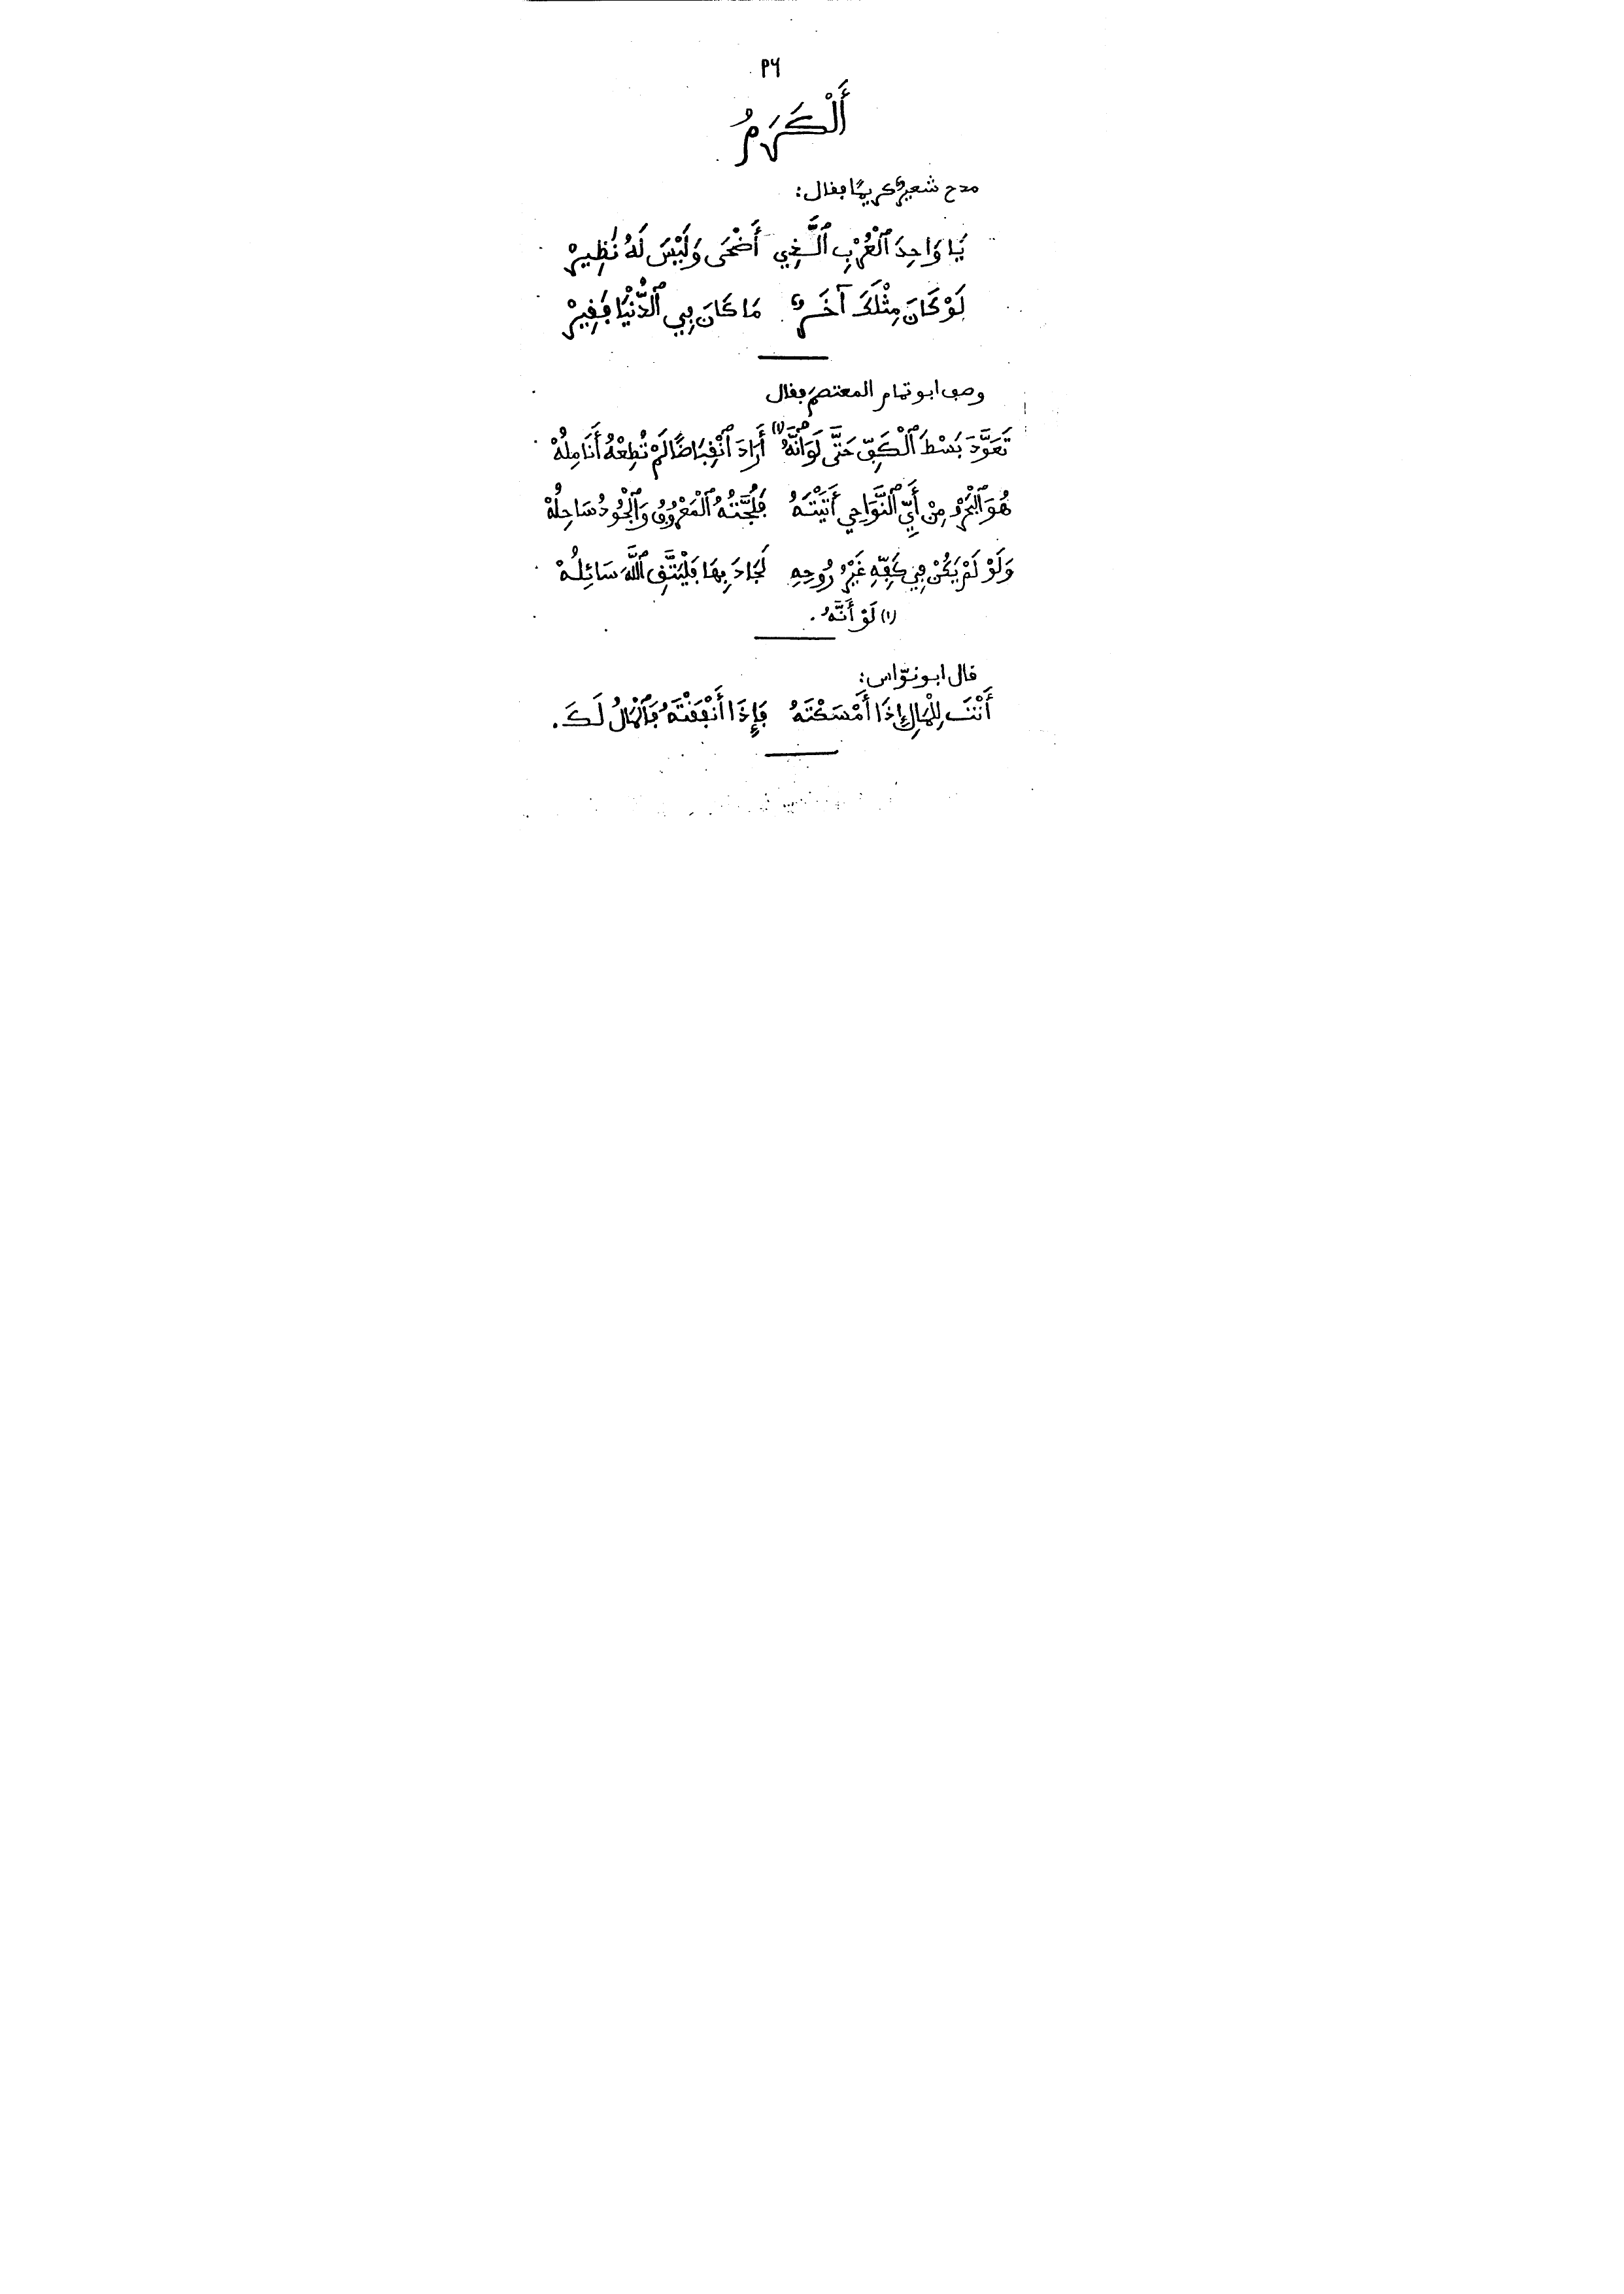 ٢٦
أَلْكَرَمُ
مدح شعيرٌ كريمًا فقال:
يَا وَاحِدَ ٱلْعُرْبِ ٱلَّذِي أَضْحَى وَلَيْسَ لَهُ نَظِيرْ
لَوْ كَانَ مِثْلَكَ آخَرٌ مَا كَانَ فِي ٱلدُّنْيَا فَقِيرْ
وصف ابو تمام المعتصمَ فقال
تَعَوَّدَ بَسْطَ ٱلْكَفِّ حَتَّى لَوَانَّهُ (١) أَرَادَ ٱنْقِبَاضًا لَمْ تُطِعْهُ أَنَامِلُهْ
هُوَ ٱلْبَحْرُ مِنْ أَيِّ ٱلنَّوَاحِي أَتَيْتَهُ فَلُجَّتُهُ ٱلْمَعْرُوفُ وَٱلْجُودُ سَاحِلُهْ
وَلَوْ لَمْ يَكُنْ فِي كَفِّهِ غَيْرُ رُوحِهِ لَجَادَ بِهَا فَلْيَتَّقِ ٱللَّهَ سَائِلُهْ
(١) لَوْ أَنَّهُ.
قال ابو نوّاس:
أَنْتَ لِلْمَالِ إِذَا أَمْسَكْتَهُ فَإِذَا أَنْفَقْتَهُ فَٱلْمَالُ لَكَ.